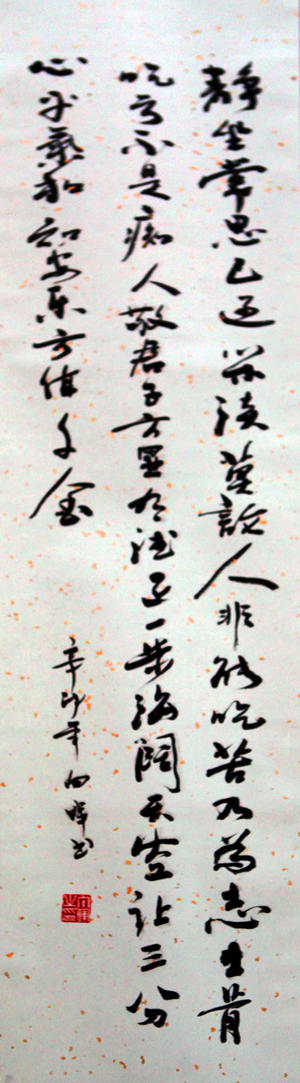 静坐常思己过闲谈莫论人非能吃苦乃为志士肯
吃亏不是痴人敬君子方显有德退一步海阔天空让三分
心平气和知安乐方值千金
辛卯年向晖书